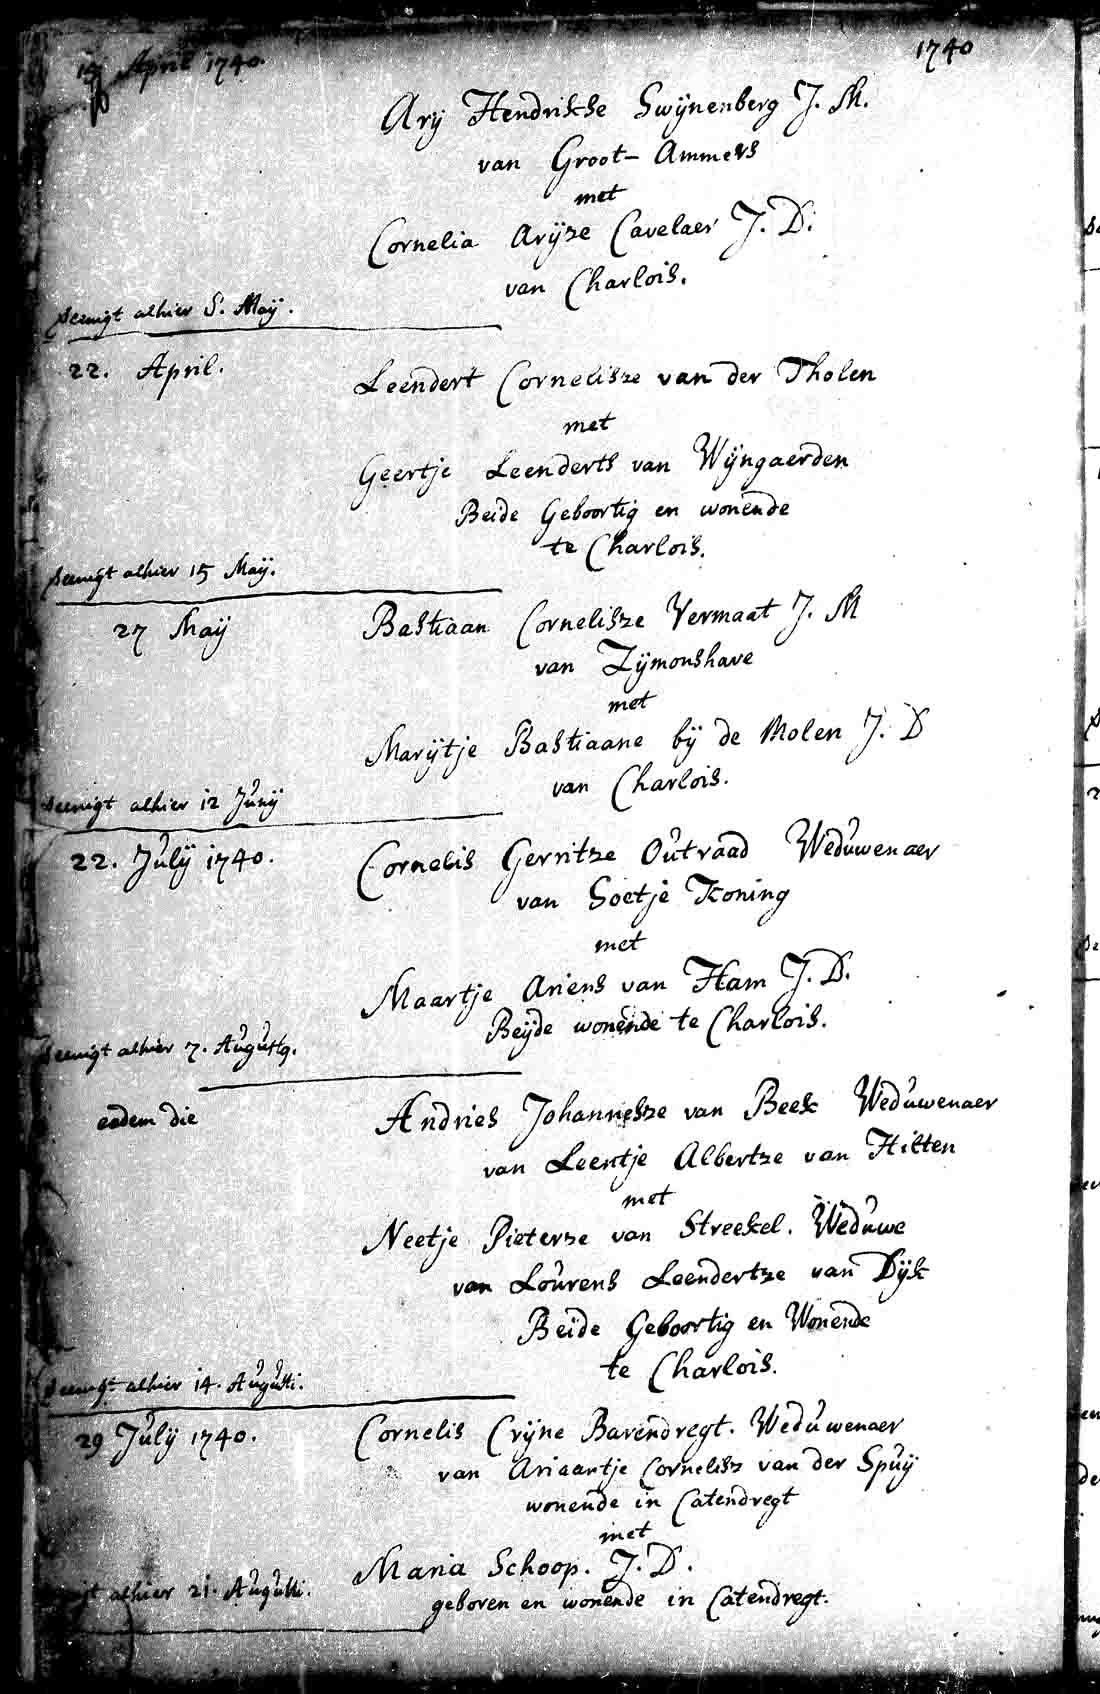 15 April 1740.
1740
Arij Hendrikse Swijnenberg J. M.
van Groot-Ammers
met
Cornelia Arijze Cavelaer J. D.
van Charlois.
alhier 8. Maij.
22. April.
Leendert Cornelisze van der Tholen
met
Geertje Leenderts van Wijngaerden
Beide Geboortig en wonende
te Charlois.
alhier 15 Maij.
27 Maij
Bastiaan Cornelisze Vermaat J. M
van Zijmonshave
met
Marijtje Bastiaane bij de Molen J. D
van Charlois.
alhier 12 Junij
22. Julij 1740.
Cornelis Gerritze Outraad Weduwenaer
van Soetje Koning
met
Maartje Ariens van Ham J. D.
Beijde wonende te Charlois.
alhier 7. Augustq.
eodem die
Andries Johannesze van Beek Weduwenaer
van Leentje Albertze van Hilten
met
Neetje Pieterze van Streekel. Weduwe
van Lourens Leendertze van Dijk
Beide Geboortig en Wonende
te Charlois.
alhier 14. Augusti.
29 Julij 1740.
Cornelis Crijne Barendregt. Weduwenaer
van Ariaantje Cornelisz van der Spuij
wonende in Catendregt
met
Maria Schoop. J. D.
alhier 21. Augusti.
geboren en wonende in Catendregt.